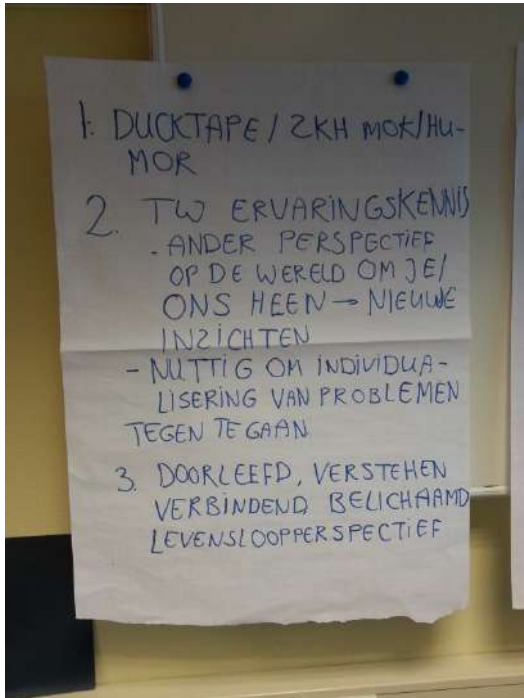 1. DUCKTAPE / ZKH MOK/HU-
MOR
2. TW ERVARINGSKENNIS
- ANDER PERSPECTIEF
OP DE WERELD OM JE/
ONS HEEN → NIEUWE
INZICHTEN
- NUTTIG OM INDIVIDUA-
LISERING VAN PROBLEMEN
TEGEN TE GAAN
3. DOORLEEFD, VERSTEHEN
VERBINDEND, BELICHAAMD
LEVENSLOOPPERSPECTIEF